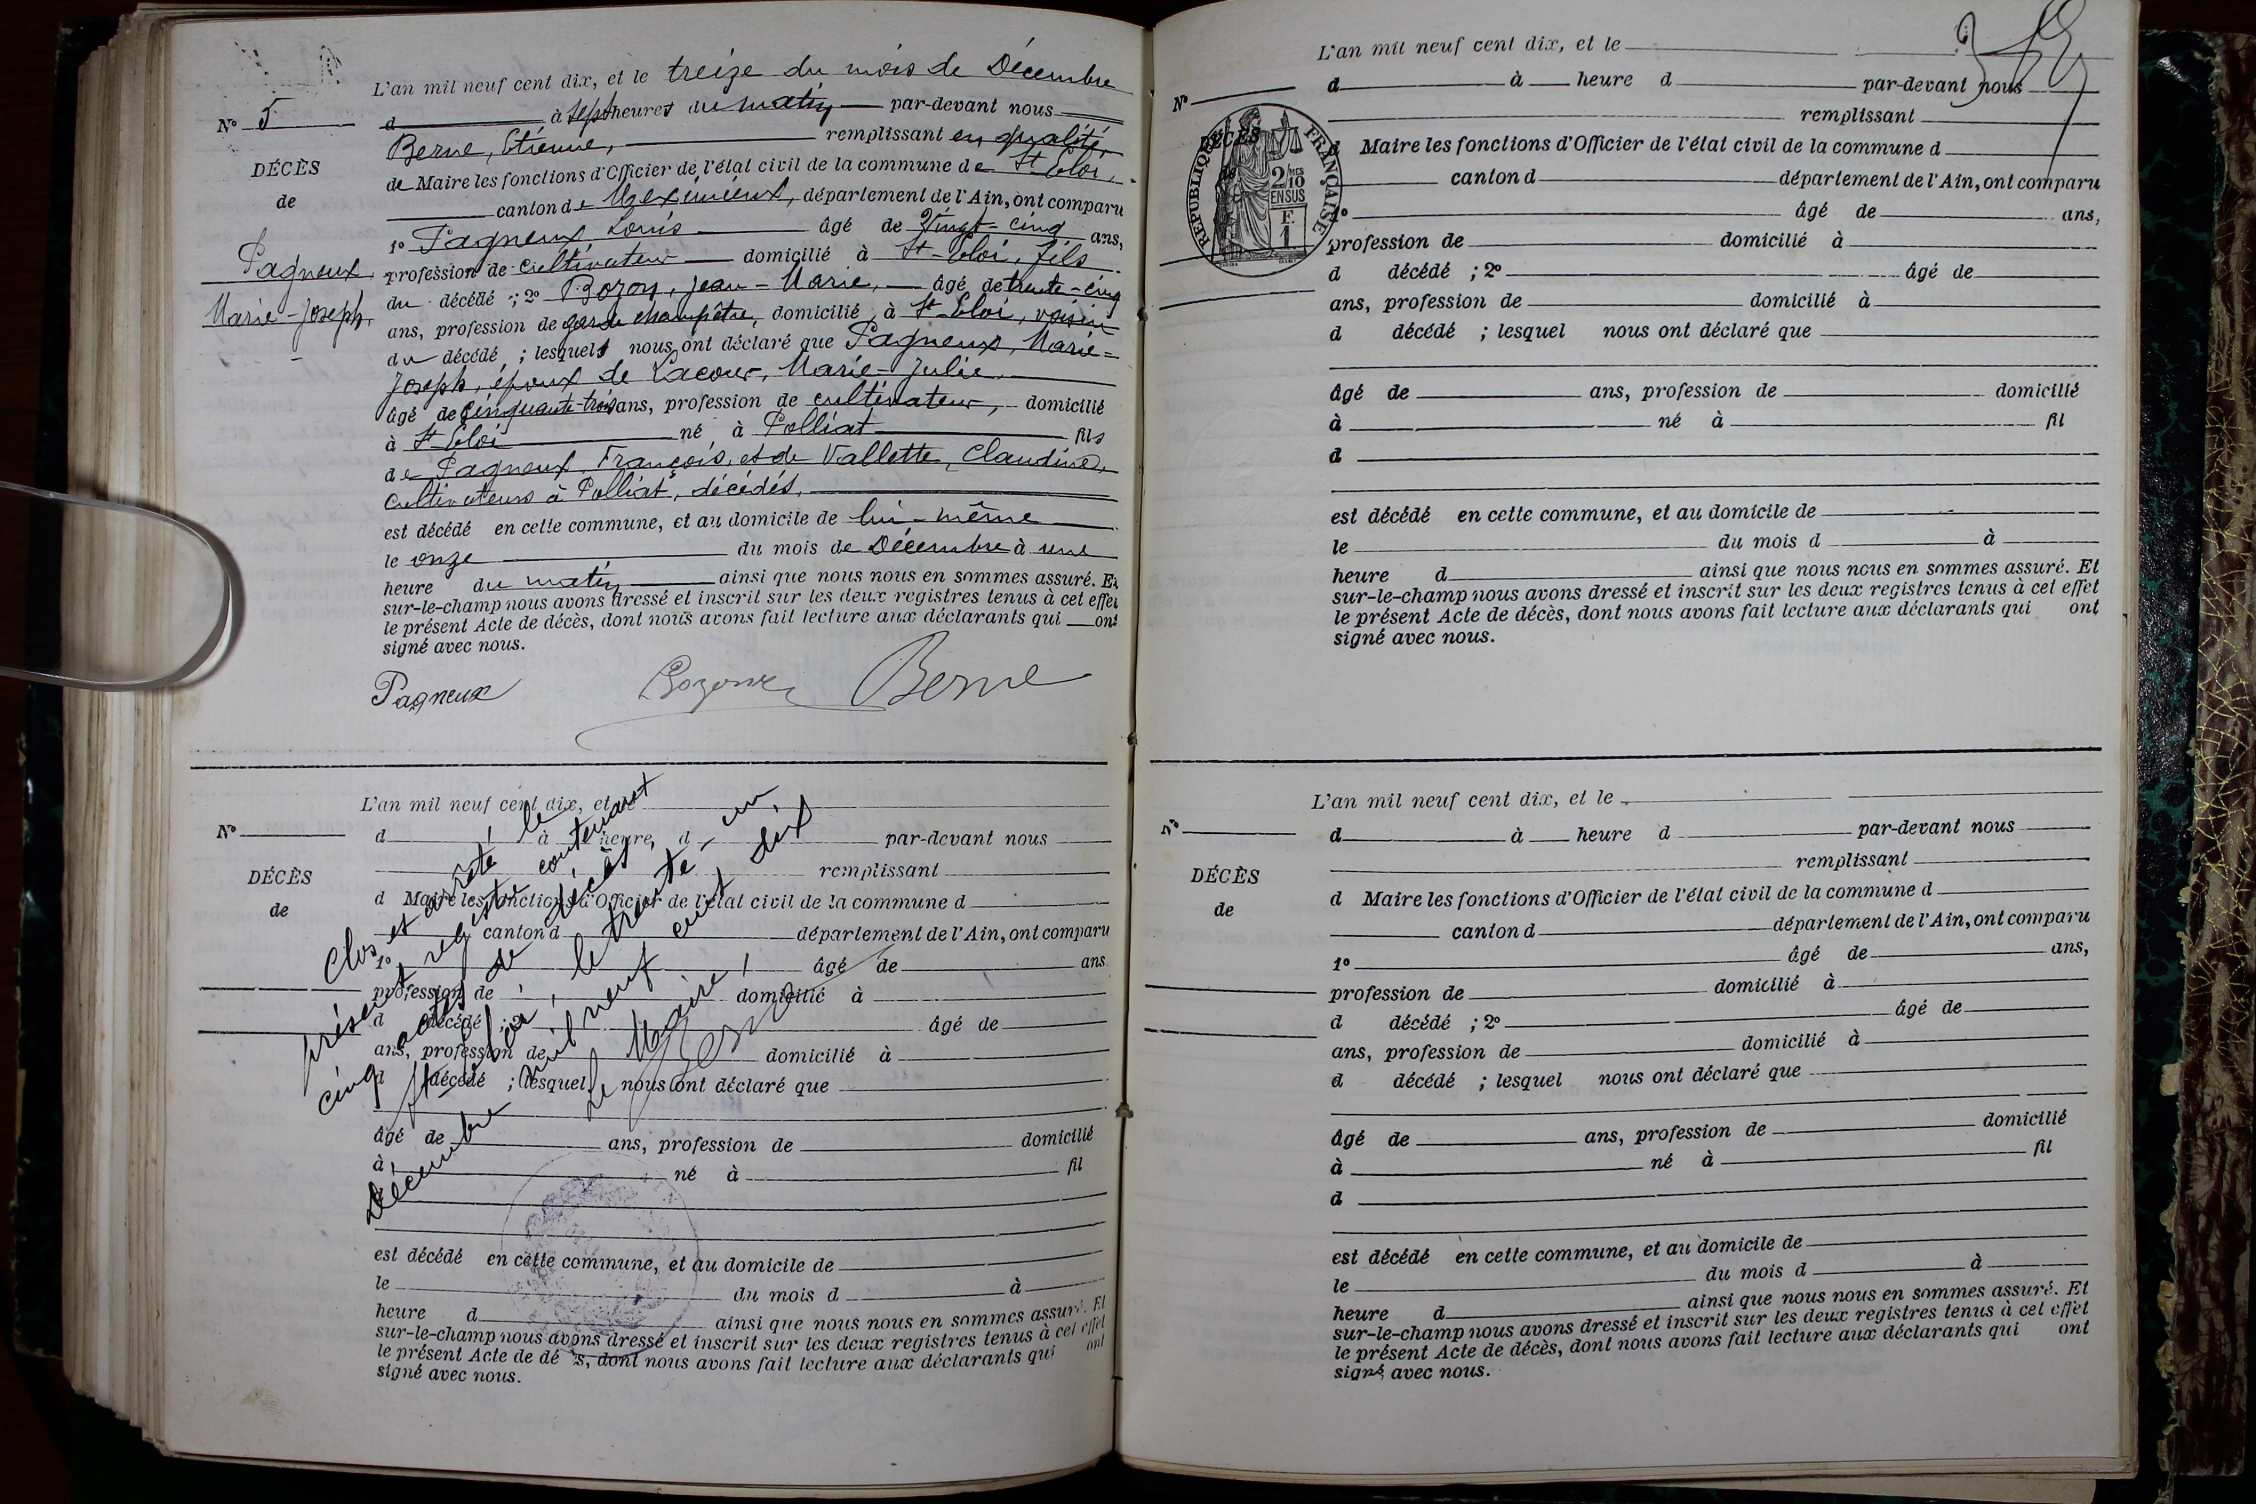 L'an mil neuf cent dix, et le treize du mois de Décembre
d à sept heures du matin par-devant nous
Berne, Etienne, remplissant en qualité
de Maire les fonctions d'Officier de l'état civil de la commune de St Eloi,
canton de Meximieux, département de l'Ain, ont comparu
1o Pagneux Louis âgé de Vingt-cinq ans,
profession de cultivateur domicilié à St-Eloi, fils
du décédé ; 2o Bozon, Jean-Marie, âgé de trente-cinq
ans, profession de garde champêtre, domicilié à St-Eloi, voisin
du décédé ; lesquels nous ont déclaré que Pagneux, Marie=
Joseph, époux de Lacour, Marie-Julie
âgé de cinquante-trois ans, profession de cultivateur, domicilié
à St Eloi né à Polliat fils
de Pagneux, François, et de Vallette, Claudine,
cultivateurs à Polliat, décédés,
est décédé en cette commune, et au domicile de lui-même
le onze du mois de Décembre à une
heure du matin ainsi que nous nous en sommes assuré. Et
sur-le-champ nous avons dressé et inscrit sur les deux registres tenus à cet effet
le présent Acte de décès, dont nous avons fait lecture aux déclarants qui ont
signé avec nous.
No 5
DÉCÈS
de
Pagneux
Marie-Joseph,
Pagneux Bozon Berne
No
DÉCÈS
de
L'an mil neuf cent dix, et le
d à heure, d par-devant nous
remplissant
d Maire les fonctions d'Officier de l'état civil de la commune d
canton d département de l'Ain, ont comparu
1o âgé de ans
profession de domicilié à
d décédé ; 2o âgé de
ans, profession de domicilié à
d décédé ; lesquel nous ont déclaré que
âgé de ans, profession de domicilié
à né à fil
d
est décédé en cette commune, et au domicile de
le du mois d à
heure d ainsi que nous nous en sommes assuré. Et
sur-le-champ nous avons dressé et inscrit sur les deux registres tenus à cet effet
le présent Acte de décès, dont nous avons fait lecture aux déclarants qui ont
signé avec nous.
Clos et arrêté le
présent registre contenant
cinq actes de décès
St Eloi, le trente-un
Décembre mil neuf cent dix
Le Maire,
Berne
No
DÉCÈS
de
RÉPUBLIQUE FRANÇAISE
2/10
EN SUS
F.
1
L'an mil neuf cent dix, et le
d à heure d par-devant nous
remplissant
d Maire les fonctions d'Officier de l'état civil de la commune d
canton d département de l'Ain, ont comparu
1o âgé de ans,
profession de domicilié à
d décédé ; 2o âgé de
ans, profession de domicilié à
d décédé ; lesquel nous ont déclaré que
âgé de ans, profession de domicilié
à né à fil
d
est décédé en cette commune, et au domicile de
le du mois d à
heure d ainsi que nous nous en sommes assuré. Et
sur-le-champ nous avons dressé et inscrit sur les deux registres tenus à cet effet
le présent Acte de décès, dont nous avons fait lecture aux déclarants qui ont
signé avec nous.
No
DÉCÈS
de
L'an mil neuf cent dix, et le
d à heure d par-devant nous
remplissant
d Maire les fonctions d'Officier de l'état civil de la commune d
canton d département de l'Ain, ont comparu
1o âgé de ans,
profession de domicilié à
d décédé ; 2o âgé de
ans, profession de domicilié à
d décédé ; lesquel nous ont déclaré que
âgé de ans, profession de domicilié
à né à fil
d
est décédé en cette commune, et au domicile de
le du mois d à
heure d ainsi que nous nous en sommes assuré. Et
sur-le-champ nous avons dressé et inscrit sur les deux registres tenus à cet effet
le présent Acte de décès, dont nous avons fait lecture aux déclarants qui ont
signé avec nous.